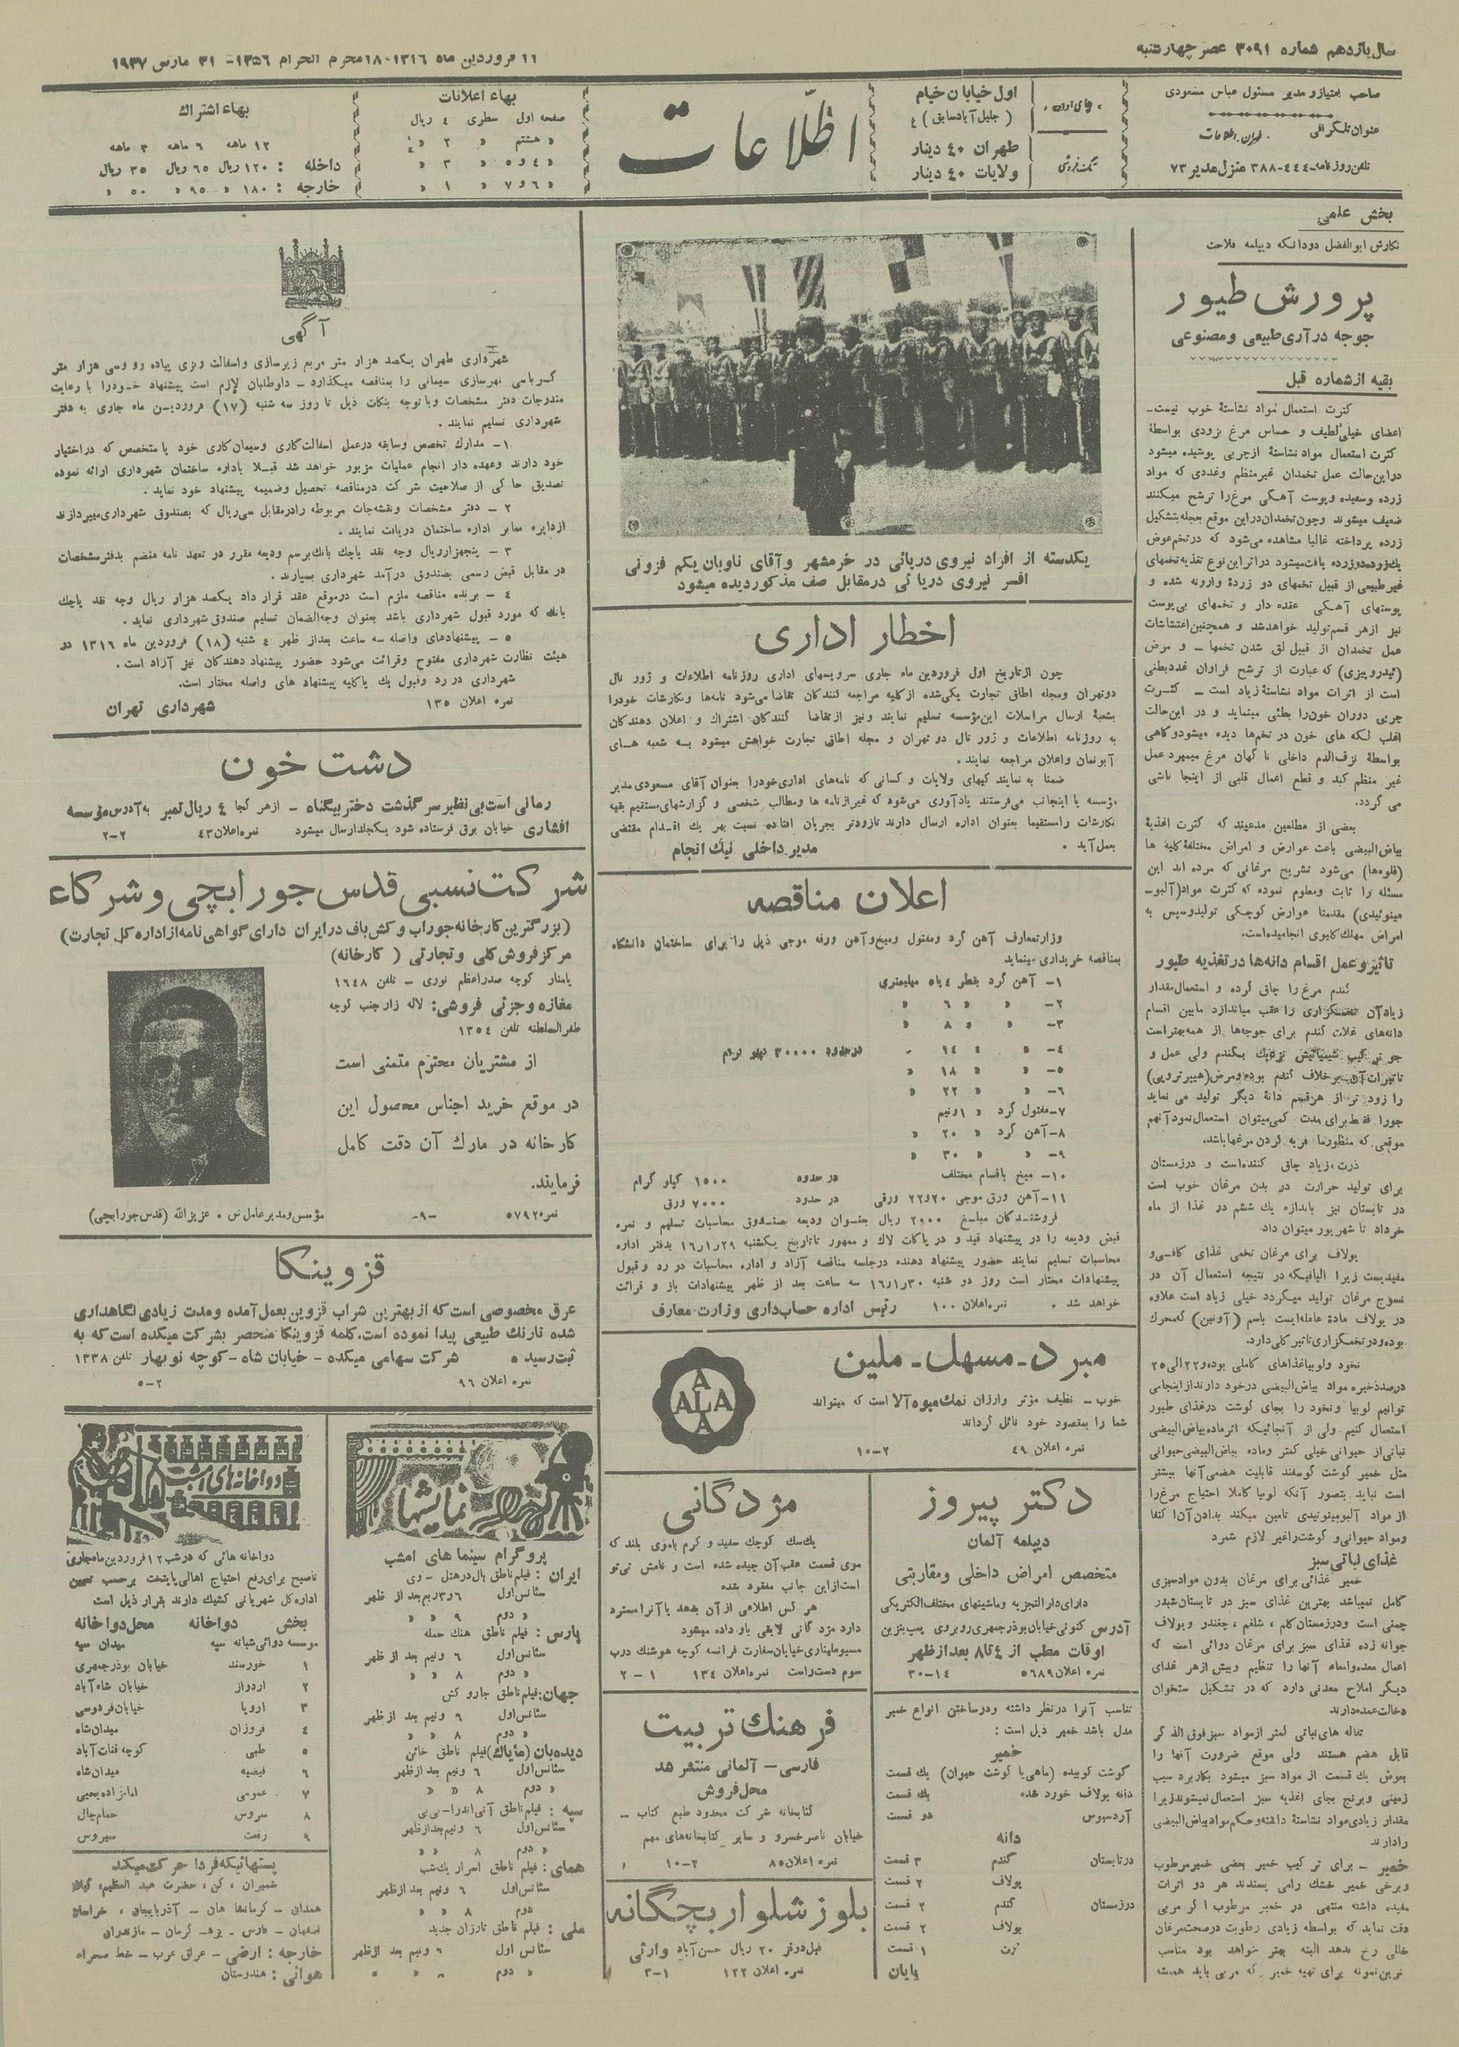 سال یازدهم شماره ۳۰۹۱ عصر چهارشنبه
۱۱ فروردین ماه ۱۳۱۶-۱۸ محرم الحرام ۱۳۵۶- ۳۱ مارس ۱۹۳۷
صاحب امتیاز و مدیر مسئول عباس مسعودی
عنوان تلگرافی طهران اطلاعات
تلفن روزنامه ۴۴۴-۳۸۸ منزل مدیر ۷۳
تکفروشی
اول خیابان خیام
( جلیل آباد سابق ) ۴
طهران ۴۰ دینار
ولایات ۴۰ دینار
اطلاعات
بهاء اعلانات
صفحه اول سطری ۴ ریال
بهاء اشتراك
۱۲ ماهه ۶ ماهه ۳ ماهه
داخله : ۱۲۰ ریال ۶۵ ریال ۳۵ ریال
خارجه : ۱۸۰ » ۹۵ » ۵۰ »
بخش علمی
نگارش ابوالفضل دودانگه دیپلمه فلاحت
پرورش طیور
جوجه درآری طبیعی و مصنوعی
بقیه از شماره قبل
کثرت استعمال مواد نشاستهٔ خوب نیست-
اعضای خیلی لطیف و حساس مرغ بزودی بواسطهٔ
کثرت استعمال مواد نشاستهٔ ازچربی پوشیده میشود
دراین حالت عمل تخمدان غیرمنظم وغددی که مواد
زرده وسفیده وپوست آهکی مرغ را ترشح میکنند
ضعیف میشوند وچون تخمدان دراین موقع بعجله بتشکیل
زرده پرداخته غالبا مشاهده می‌شود که درتخم عوض
یك زرده دوزرده یافت میشود دراثر این نوع تغذیه تخمهای
غیرطبیعی از قبیل تخمهای دو زردهٔ وارونه شده و
پوستهای آهکی عقده دار و تخمهای بی‌پوست
نیز ازهر قسم تولید خواهد شد و همچنین اغتشاشات
عمل تخمدان از قبیل لق شدن تخمها - و مرض
که عبارت از ترشح فراوان غدد بطنی
است از اثرات مواد نشاستهٔ زیاد است - کثرت
چربی دوران خون را بطئی مینماید و در این حالت
اغلب لکه های خون در تخم‌ها دیده میشود وگاهی
بواسطهٔ نزف‌الدم داخلی ناگهان مرغ میمیرد عمل
غیر منظم کبد و قطع اعمال قلبی از اینجا ناشی
می گردد.
بعضی از مطلعین مدعیند که کثرت اغذیهٔ
بیاض‌البیضی باعث عوارض و امراض مختلفهٔ کلیه ها
(قلوه‌ها) می‌شود تشریح مرغانی که مرده اند این
مسئله را ثابت ومعلوم نموده که کثرت مواد (آلبو-
مینوئیدی) مقدمتا عوارض کوچکی تولید وسپس به
امراض مهلك کلیوی انجامیده است.
تاثیر و عمل اقسام دانه‌ها در تغذیه طیور
گندم مرغ را چاق کرده و استعمال مقدار
زیاد آن تخمگزاری را عقب میاندازد مابین اقسام
دانه‌های غلات گندم برای جوجه‌ها از همه بهتر است
را زود تر از هرقسم دانهٔ دیگر تولید می نماید
جورا فقط برای مدت کمی میتوان استعمال نمود آنهم
موقعی که منظور ما فربه کردن مرغها باشد.
ذرت زیاد چاق کننده است و درزمستان
برای تولید حرارت در بدن مرغان خوب است
در تابستان نیز باندازه یك ششم در غذا از ماه
خرداد تا شهریور میتوان داد
یولاف برای مرغان تخمی غذای کافی و
مفیدیست زیرا الیافیکه در نتیجه استعمال آن در
نسوج مرغان تولید میگردد خیلی زیاد است علاوه
در یولاف مادهٔ عامله‌ایست باسم (آونین) که محرك
بوده ودر تخمگزاری تاثیر کلی دارد.
نخود ولوبیا غذاهای کاملی بوده و ۲۲ الی ۲۵
درصد ذخیره مواد بیاض‌البیضی درخود دارند از اینجا می
توانیم لوبیا ونخود را بجای گوشت درغذای طیور
استعمال کنیم ولی از آنجائیکه اثر ماده بیاض‌البیضی
نباتی از حیوانی خیلی کمتر وماده بیاض‌البیضی حیوانی
مثل خمیر گوشت گوسفند قابلیت هضمی آنها بیشتر
است نباید بتصور آنکه لوبیا کاملا احتیاج مرغ را
از مواد آلبومینوئیدی تامین میکند بدادن آن اکتفا
ومواد حیوانی و گوشت راغیر لازم شمرد
غذای نباتی سبز
خمیر غذائی برای مرغان بدون مواد سبزی
کامل نمیباشد بهترین غذای سبز در تابستان شبدر
چمنی است ودرزمستان کلم ، شلغم ، چغندر ویولاف
جوانه زده غذای سبز برای مرغان دوائی است که
اعمال معده وامعاء آنها را تنظیم وبیش ازهر غذای
دیگر املاح معدنی دارد که در تشکیل ستخوان
دخالت عمده دارند
تفاله های نباتی کمتر ازمواد سبز فوق الذکر
قابل هضم هستند ولی موقع ضرورت آنها را
بعوض یك قسمت از مواد سبز میشود بکاربرد سیب
زمینی وبرنج بجای اغذیه سبز استعمال نمیشوند زیرا
مقدار زیادی مواد نشاستهٔ داشته وحکم مواد بیاض‌البیضی
را دارند
خمیر - برای ترکیب خمیر بعضی خمیر مرطوب
وبرخی خمیر خشك رامی پسندند هر دو اثرات
مفیده داشته منتهی در خمیر مرطوب اگر مربی
دقت نماید که بواسطه زیادی رطوبت درصحت مرغان
خللی رخ ندهد البته بهتر خواهد بود مناسب
ترین نمونه برای تهیه خمیر که مربی باید همیشه
یکدسته از افراد نیروی دریائی در خرمشهر و آقای ناوبان یکم فزونی
افسر نیروی دریائی در مقابل صف مذکور دیده میشود
اخطار اداری
چون از تاریخ اول فروردین ماه جاری سرویسهای اداری روزنامه اطلاعات و ژورنال
دوتهران ومجله اطاق تجارت یکی‌شده ازکلیه مراجعه کنندگان تقاضا می‌شود نامه‌ها ونگارشات خودرا
بشعبهٔ ارسال مراسلات این مؤسسه تسلیم نمایند ونیز از تقاضا کنندگان اشتراك و اعلان دهندگان
به روزنامه اطلاعات و ژورنال دو تهران و مجله اطاق تجارت خواهش میشود به شعبه های
آبونمان واعلان مراجعه نمایند.
ضمنا به نمایندگیهای ولایات و کسانی که نامه‌های اداری خودرا بعنوان آقای مسعودی مدیر
مؤسسه یا اینجانب می‌فرستند یادآوری می‌شود که غیر از نامه ها ومطالب شخصی و گزارشهای مستقیم بقیه
نگارشات را مستقیما بعنوان اداره ارسال دارند تا زودتر بجریان افتاده نسبت بهر یك اقدام مقتضی
بعمل آید .
مدیر داخلی نیك انجام
اعلان مناقصه
وزارت معارف آهن گرد ومفتول ومیخ وآهن ورقه موجی ذیل را برای ساختمان دانشگاه
بمناقصه خریداری مینماید
۱- آهن گرد بقطر ۴ یا ۵ میلیمتری
۲- » » ۶ »
۳- » » ۸ »
۴- » » ۱۴ - درحدود ۳۰۰۰۰ کیلو گرام
۵- » » ۱۸ »
۶- » » ۲۲ »
۷- مفتول گرد » ۱ ونیم
۸- آهن گرد » ۲۰ »
۹- » » ۳۰ »
۱۰- میخ باقسام مختلف در حدود ۱۵۰۰ کیلو گرام
۱۱- آهن ورق موجی ۲۰ و ۲۲ ورقی در حدود ۷۰۰۰ ورق
فروشندگان مبلغ ۲۰۰۰ ریال بعنوان ودیعه بصندوق محاسبات تسلیم و نمره
قبض ودیعه را در پیشنهاد قید و در پاکات لاك و ممهور تا تاریخ یکشنبه ۱۶/۱/۲۹ بدفتر اداره
محاسبات تسلیم نمایند حضور پیشنهاد دهنده درجلسه مناقصه آزاد و اداره محاسبات در رد و قبول
پیشنهادات مختار است روز دو شنبه ۱۶/۱/۳۰ سه ساعت بعد از ظهر پیشنهادات باز و قرائت
خواهد شد . نمره اعلان ۱۰۰ رئیس اداره حسابداری وزارت معارف
مبرد - مسهل - ملین
خوب - نظیف مؤثر وارزان نمك میوه آلا است که میتواند
شما را بمقصود خود نائل گرداند
نمره اعلان ۴۹ ۱۰-۲
ALA
دکتر پیروز
دیپلمه آلمان
متخصص امراض داخلی و مقاربتی
دارای دارالتجزیه و ماشینهای مختلف الکتریکی
آدرس کنونی خیابان بوذرجمهری روبروی پمپ بنزین
اوقات مطب از ۴ تا ۸ بعد از ظهر
نمره اعلان ۵۶۸۹ ۳۰-۱۴
تناسب آنرا درنظر داشته ودرساختن انواع خمیر
مدل باشد خمیر ذیل است :
خمیر
گوشت کوبیده (ماهی یا گوشت حیوان) یك قسمت
دانه یولاف خورد شده یك قسمت
آرد سبوس دو قسمت
دانه
درتابستان گندم ۳ قسمت
یولاف ۲ قسمت
درزمستان گندم ۲ قسمت
یولاف ۲ قسمت
ذرت ۱ قسمت
پایان
مژدگانی
یك سك کوچك سفید و کرم باموی بلند که
موی قسمت عقب آن چیده شده است و نامش تی‌تو
است ازاین جانب مفقود شده
هر کس اطلاعی از آن بدهد یا آنرا مسترد
دارد مزدگانی لایقی باو داده میشود
خیابان سفارت فرانسه کوچه هوشنك درب
سوم دست راست نمره اعلان ۱۳۴ ۲-۱
فرهنك تربیت
فارسی - آلمانی منتشر شد
محل فروش
کتابخانه شرکت محدود طبع کتاب -
خیابان ناصر خسرو و سایر کتابخانه‌های مهم
نمره اعلان ۸۵ ۱۰-۲
بلوز شلوار بچگانه
فیل‌دوقز ۲۰ ریال حسن آباد وارثی
نمره اعلان ۱۲۲ ۳-۱
آگهی
شهرداری طهران یکصد هزار متر مربع زیرسازی واسفالت ریزی پیاده رو وسی هزار متر
کرباسی نهرسازی سیمانی را بمناقصه میگذارد - داوطلبان لازم است پیشنهاد خودرا با رعایت
مندرجات دفتر مشخصات وبا توجه بنکات ذیل تا روز سه شنبه (۱۷) فروردین ماه جاری به دفتر
شهرداری تسلیم نمایند .
۱- مدارك تخصص وسابقه درعمل اسفالت کاری وسیمان کاری خود یا متخصص که دراختیار
خود دارند وعهده دار انجام عملیات مزبور خواهد شد قبلا باداره ساختمان شهرداری ارائه نموده
تصدیق حاکی از صلاحیت شرکت درمناقصه تحصیل وضمیمه پیشنهاد خود نماید .
۲ - دفتر مشخصات ونقشه‌جات مربوطه را درمقابل سی ریال که بصندوق شهرداری میپردازند
ازدایره معابر اداره ساختمان دریافت نمایند .
۳ - پنجهزار ریال وجه نقد یا چك بانك برسم ودیعه مقرر در تعهد نامه منضم بدفتر مشخصات
در مقابل قبض رسمی بصندوق درآمد شهرداری بسپارند .
۴ - برنده مناقصه ملزم است درموقع عقد قرار داد یکصد هزار ریال وجه نقد یا چك
بانك که مورد قبول شهرداری باشد بعنوان وجه‌الضمان تسلیم صندوق شهرداری نماید .
۵ - پیشنهادهای واصله سه ساعت بعد از ظهر ۴ شنبه (۱۸) فروردین ماه ۱۳۱۶ در
هیئت نظارت شهرداری مفتوح وقرائت می‌شود حضور پیشنهاد دهندگان نیز آزاد است .
شهرداری در رد وقبول یك یا کلیه پیشنهاد های واصله مختار است.
نمره اعلان ۱۳۵ شهرداری تهران
دشت خون
رمانی است بی نظیر سرگذشت دختر بیگناه - ازهر کجا ۴ ریال تمبر به آدرس مؤسسه
افشاری خیابان برق فرستاده شود یکجلد ارسال میشود نمره اعلان ۴۳ ۲-۲
شرکت نسبی قدس جورابچی و شرکاء
(بزرگترین کارخانه جوراب و کش‌باف در ایران دارای گواهی نامه از اداره کل تجارت)
مرکز فروش کلی و تجارتی ( کارخانه)
پامنار کوچه صدراعظم نوری - تلفن ۱۶۴۸
مغازه و جزئی فروشی: لاله زار جنب کوچه
ظفرالسلطنه تلفن ۱۳۵۴
از مشتریان محترم متمنی است
در موقع خرید اجناس محصول این
کارخانه در مارك آن دقت کامل
فرمایند.
نمره ۵۷۹۲ -۹- مؤسس ومدیر عامل س . عزیزالله (قدس جورابچی)
قزوینکا
عرق مخصوصی است که از بهترین شراب قزوین بعمل آمده و مدت زیادی نگاهداری
شده تا رنك طبیعی پیدا نموده است. کلمه قزوینکا منحصر بشرکت میکده است که به
ثبت رسیده ۵ شرکت سهامی میکده - خیابان شاه - کوچه نوبهار تلفن ۱۳۳۸
نمره اعلان ۹۶ ۵-۲
نمایشها
پروگرام سینما های امشب
ایران : فیلم ناطق بال در هتل - وی
سئانس اول ۶ و ۳ ربع بعد از ظهر
» دوم ۹ » »
پارس : فیلم ناطق هنك حمله
سئانس اول ۶ ونیم بعد از ظهر
» دوم ۸ » »
جهان: فیلم ناطق جارو کش
سئانس اول ۶ ونیم بعد از ظهر
» دوم ۸ » »
دیده‌بان (مایاك) فیلم ناطق خائن
سئانس اول ۶ ونیم بعد از ظهر
» دوم ۸ » »
سئانس اول ۶ ونیم بعد از ظهر
» دوم ۸ » »
همای : فیلم ناطق اسرار یك شب
سئانس اول ۶ ونیم بعد از ظهر
» دوم ۸ » »
ملی : فیلم ناطق تارزان جدید
سئانس اول ۶ ونیم بعد از ظهر
» دوم » »
دواخانه‌های امشب
دواخانه هائی که در شب ۱۲ فروردین ماه جاری
تا صبح برای رفع احتیاج اهالی پایتخت برحسب تعیین
اداره کل شهربانی کشیك دارند بقرار ذیل است
بخش دواخانه محل دواخانه
موسسه دوائی شبانه سپه میدان سپه
۱ خورسند خیابان بوذرجمهری
۲ اردواز خیابان شاه آباد
۳ اروپا خیابان فردوسی
۴ فروزان میدان شاه
۵ طبی کوچه قنات آباد
۶ فیضیه میدان شاه
۷ عمومی امامزاده یحیی
۸ سروس حمام چال
۹ رفعت سیروس
پستهائیکه فردا حرکت میکند
شمیران ، کن ، حضرت عبدالعظیم، گیلان
همدان - کرمانشاهان - آذربایجان ، خراسان
اصفهان - فارس - یزد - کرمان - مازندران
خارجه : ارضی - عراق عرب - خط صحراء
هوائی : هندوستان